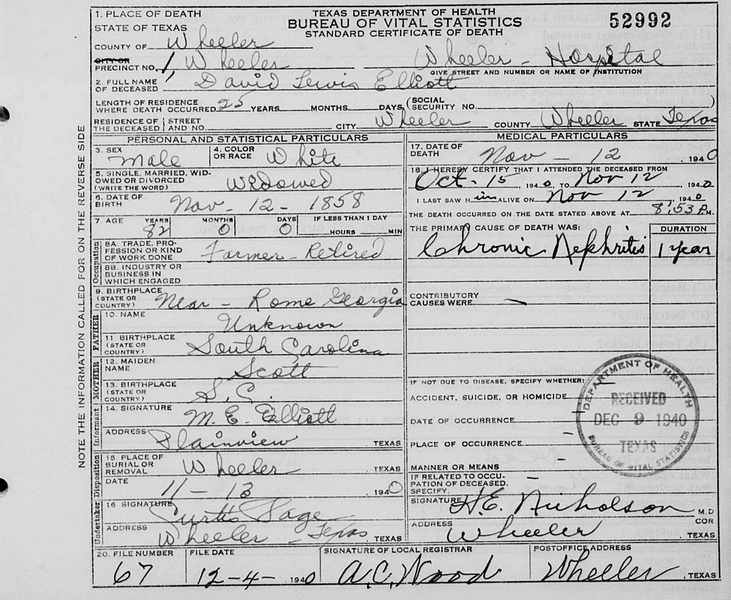 TEXAS DEPARTMENT OF HEALTH
BUREAU OF VITAL STATISTICS
STANDARD CERTIFICATE OF DEATH
52992
1. PLACE OF DEATH
STATE OF TEXAS
COUNTY OF Wheeler
CITY OR PRECINCT NO. 1 Wheeler
Wheeler - Hospital
GIVE STREET AND NUMBER OR NAME OF INSTITUTION
2. FULL NAME OF DECEASED David Lewis Elliott
LENGTH OF RESIDENCE WHERE DEATH OCCURRED 25 YEARS MONTHS DAYS (SOCIAL SECURITY NO.
RESIDENCE OF THE DECEASED STREET AND NO. CITY Wheeler COUNTY Wheeler STATE Texas
NOTE THE INFORMATION CALLED FOR ON THE REVERSE SIDE
PERSONAL AND STATISTICAL PARTICULARS
3. SEX Male
4. COLOR OR RACE White
5. SINGLE, MARRIED, WIDOWED OR DIVORCED (WRITE THE WORD) Widowed
6. DATE OF BIRTH Nov - 12 - 1858
7 AGE YEARS 82 MONTHS 0 DAYS 0 IF LESS THAN 1 DAY HOURS MIN
Occupation
8A. TRADE, PROFESSION OR KIND OF WORK DONE Farmer - Retired
8B. INDUSTRY OR BUSINESS IN WHICH ENGAGED
9. BIRTHPLACE (STATE OR COUNTRY) Near - Rome Georgia
FATHER
10. NAME Unknown
11 BIRTHPLACE (STATE OR COUNTRY) South Carolina
MOTHER
12. MAIDEN NAME Scott
13. BIRTHPLACE (STATE OR COUNTRY) S. C.
Informant
14. SIGNATURE M. E. Elliott
ADDRESS Plainview TEXAS
Disposition
15. PLACE OF BURIAL OR REMOVAL Wheeler TEXAS
DATE 11 - 13 1940
Undertaker
16 SIGNATURE Curtis Page
ADDRESS Wheeler - Texas, TEXAS
MEDICAL PARTICULARS
17. DATE OF DEATH Nov - 12 1940
18. I HEREBY CERTIFY THAT I ATTENDED THE DECEASED FROM
Oct. 15 1940 TO Nov 12 1940
I LAST SAW H im ALIVE ON Nov 12 1940
THE DEATH OCCURRED ON THE DATE STATED ABOVE AT 8:53 P.M.
THE PRIMARY CAUSE OF DEATH WAS: DURATION
Chronic Nephritis 1 year
CONTRIBUTORY CAUSES WERE -
IF NOT DUE TO DISEASE, SPECIFY WHETHER:
ACCIDENT, SUICIDE, OR HOMICIDE
DATE OF OCCURRENCE -
PLACE OF OCCURRENCE -
MANNER OR MEANS -
IF RELATED TO OCCUPATION OF DECEASED, SPECIFY
DEPARTMENT OF HEALTH
RECEIVED
DEC 9 1940
TEXAS
BUREAU OF VITAL STATISTICS
SIGNATURE H. E. Nicholson M.D
COR
ADDRESS Wheeler, TEXAS
20. FILE NUMBER 67
FILE DATE 12-4- 1940
SIGNATURE OF LOCAL REGISTRAR A. C. Wood
POSTOFFICE ADDRESS Wheeler, TEXAS